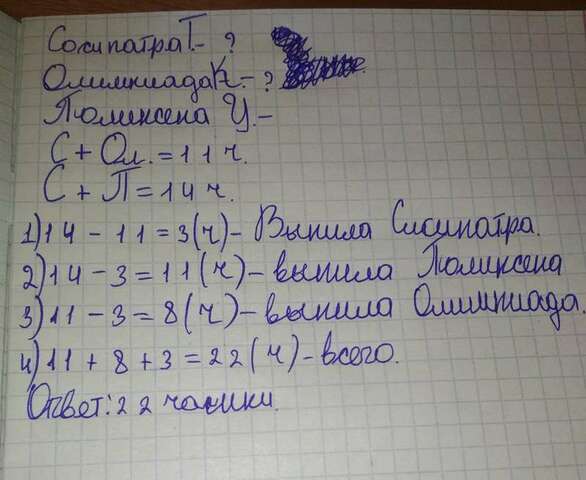 Сосипатра Г. - ?
Олимпиада К. - ?
Поликсена У. -
С + Ол. = 11 ч.
С + П = 14 ч.
1) 14 - 11 = 3 (ч) - Выпила Сосипатра.
2) 14 - 3 = 11 (ч) - выпила Поликсена
3) 11 - 3 = 8 (ч) - выпила Олимпиада.
4) 11 + 8 + 3 = 22 (ч) - всего.
Ответ: 22 чашки.